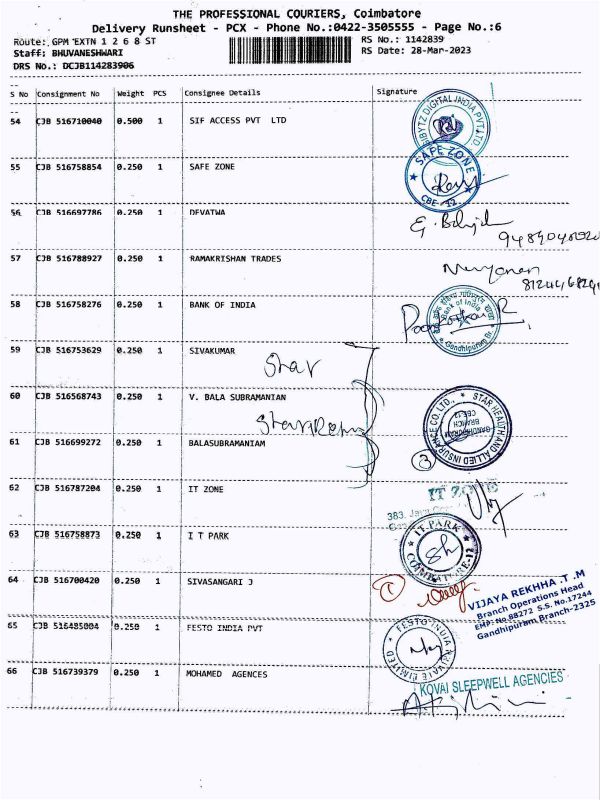 THE PROFESSIONAL COURIERS, Coimbatore
Delivery Runsheet - PCX - Phone No.:0422-3505555 - Page No.:6
Route: GPM EXTN 1 2 6 8 ST
RS No.: 1142839
Staff: BHUVANESHWARI
RS Date: 28-Mar-2023
DRS No.: DCJB114283906
S No Consignment No Weight PCS Consignee Details Signature
54 CJB 516710040 0.500 1 SIF ACCESS PVT LTD
55 CJB 516758854 0.250 1 SAFE ZONE
SAFE ZONE
CBE - 12
56 CJB 516697786 0.250 1 DEVATWA
57 CJB 516788927 0.250 1 RAMAKRISHAN TRADES
58 CJB 516758276 0.250 1 BANK OF INDIA
Bank of India
Gandhipuram Br.
59 CJB 516753629 0.250 1 SIVAKUMAR
Star
60 CJB 516568743 0.250 1 V. BALA SUBRAMANIAN
STAR HEALTH AND ALLIED INSURANCE CO. LTD.,
BRANCH
61 CJB 516699272 0.250 1 BALASUBRAMANIAM
3
62 CJB 516787204 0.250 1 IT ZONE
IT ZONE
63 CJB 516758873 0.250 1 I T PARK
IT PARK
COIMBATORE-12
64 CJB 516700420 0.250 1 SIVASANGARI J
1
VIJAYA REKHHA .T .M
Branch Operations Head
EMP: No 88272 S.S. No.17244
Gandhipuram Branch-2325
65 CJB 516485004 0.250 1 FESTO INDIA PVT
FESTO INDIA PRIVATE LIMITED
66 CJB 516739379 0.250 1 MOHAMED AGENCES
KOVAI SLEEPWELL AGENCIES